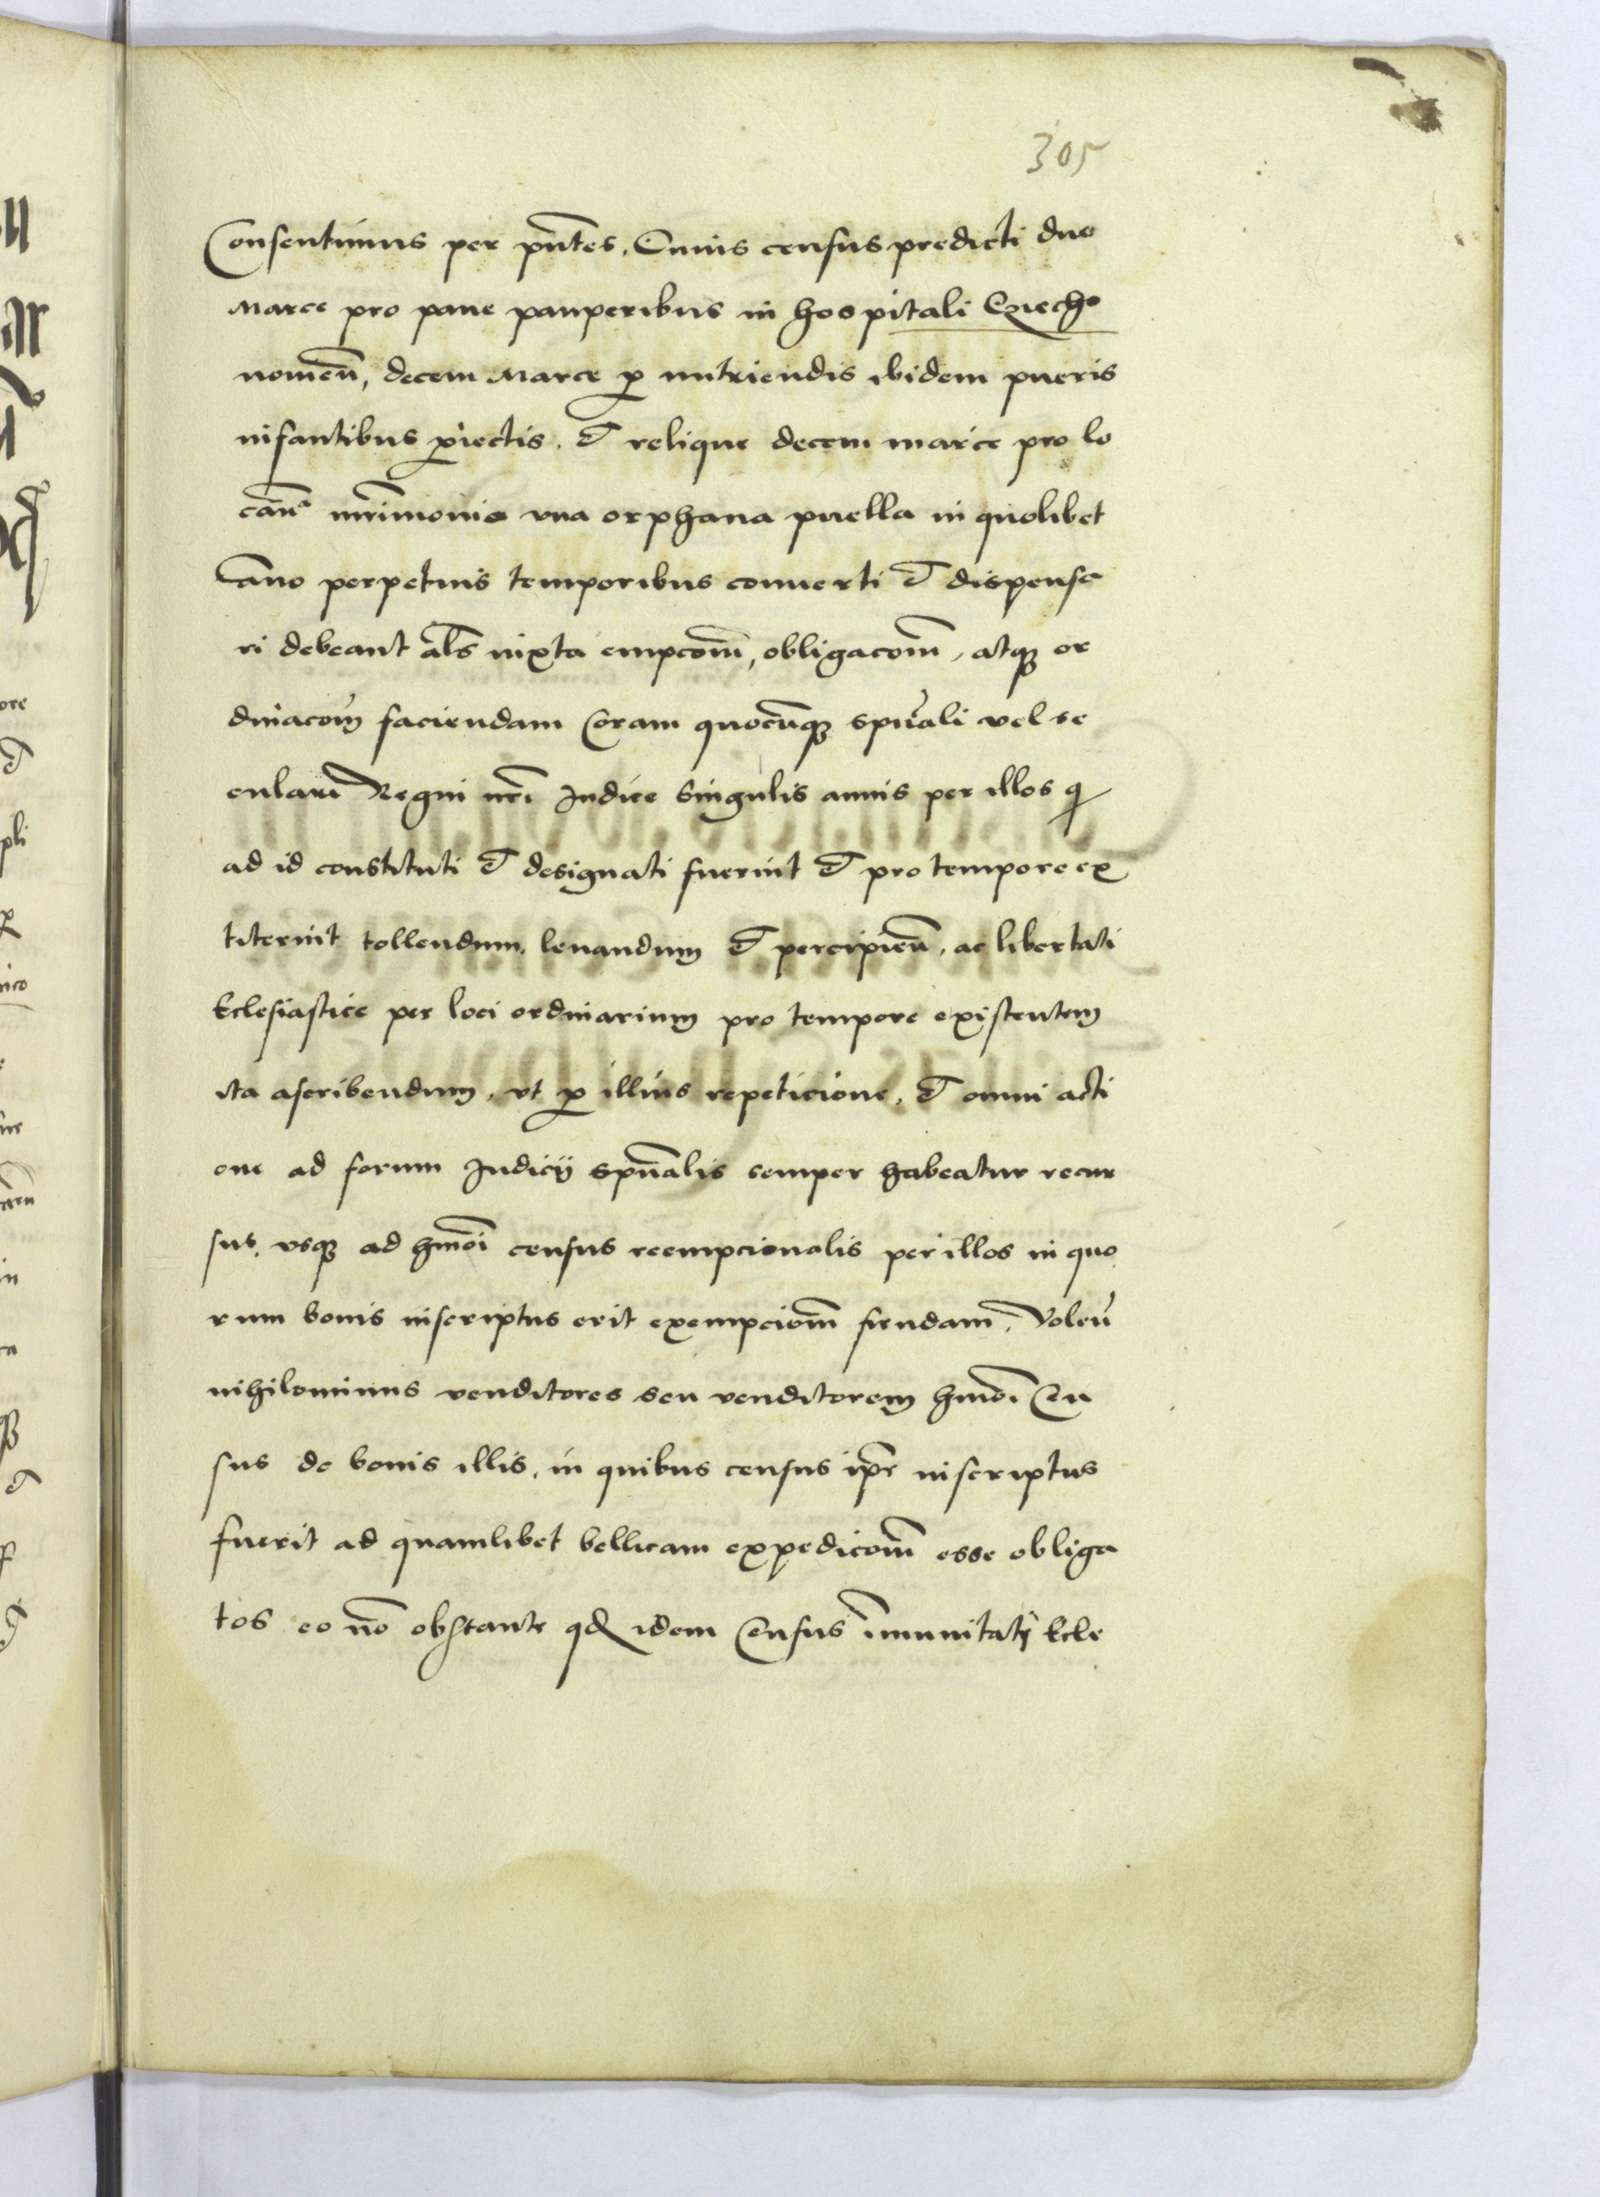 305
Consentimus per pñtes. Cuius census predicti due
Marce pro pane pauperibus in hospitali
nomeñ, decem Marce p nutriendis ibidem pueris
infantibus piectis. et relique decem marce pro lo
cañ mrimonio una orphana puella in quolibet
anno perpetuis temporibus conuerti et dispensa
ri debeant als iuxta empcom̃, obligacom̃, atqꝫ or
dinacom̃ faciendam Coram quocunqꝫ spũali vel se
culari Regni nrĩ Judice Singulis annis per illos q
ad id constituti et designati fuerint et pro tempore ex
titerint tollendum. leuandum et percipieñ. ac libertati
Ecclesiastice per loci ordinarium pro tempore existentem
ita ascribendum. vt p illius repeticione. et omni acti
one ad forum Judicij spũalis semper habeatur recur
sus. vsqꝫ ad hmõi census reempcionalis per illos in quo
rum bonis inscriptus erit exempciom̃ fiendam. Voleñ
nihilominus venditores seu venditorem hmõi Cen
sus de bonis illis, in quibus census ipẽ inscriptus
fuerit ad quamlibet bellicam expedicom̃ esse obliga
tos eo nõ obstante qd idem Census im̃unitati Eccle